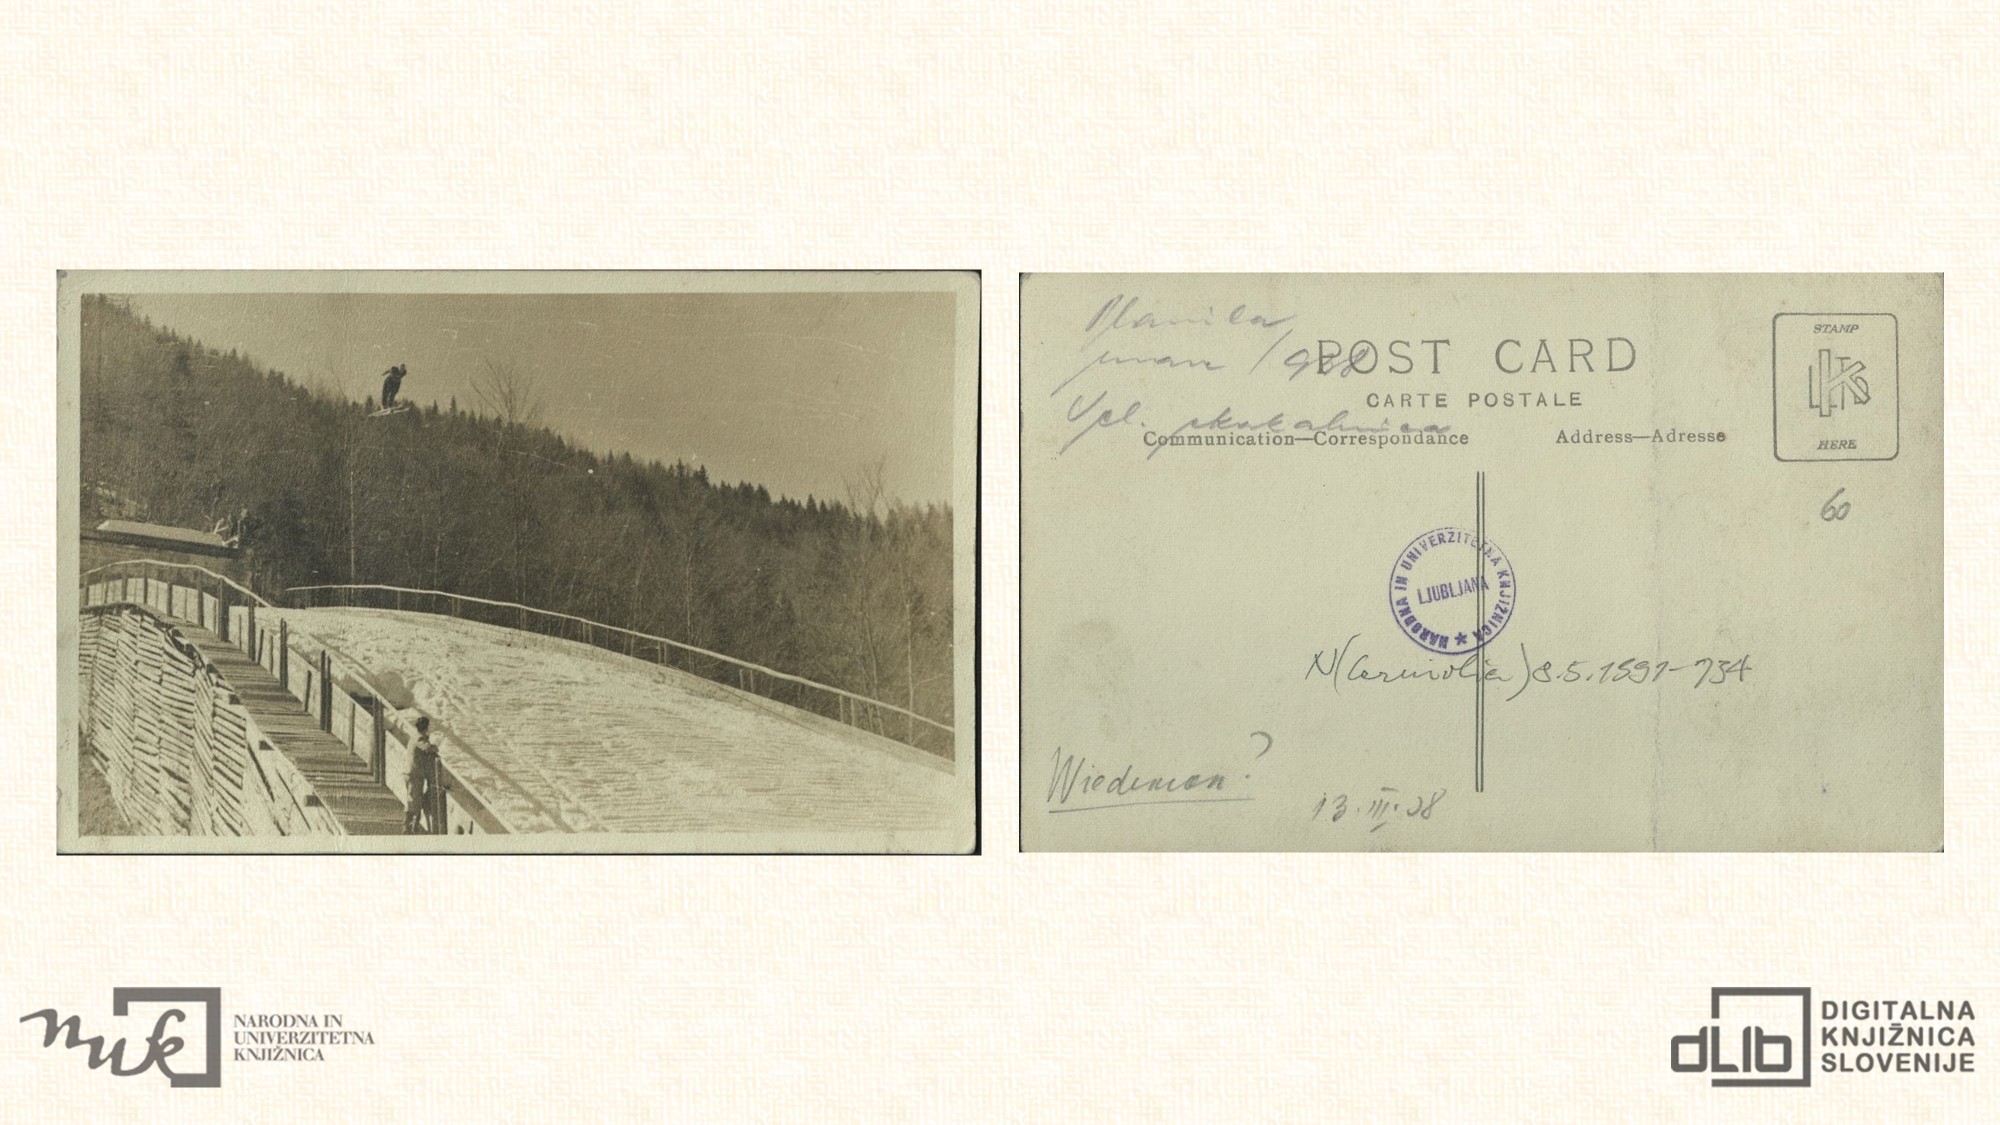 Planica
marc 1938
Vel. skakalnica
POST CARD
CARTE POSTALE
Communication—Correspondance
Address—Adresse
STAMP
HERE
60
NARODNA IN UNIVERZITETNA KNJIŽNICA
LJUBLJANA
N(Carniolica) 8.5.1591-734
Wiedeman?
13.III.38
nuk
NARODNA IN
UNIVERZITETNA
KNJIŽNICA
dLib
DIGITALNA
KNJIŽNICA
SLOVENIJE